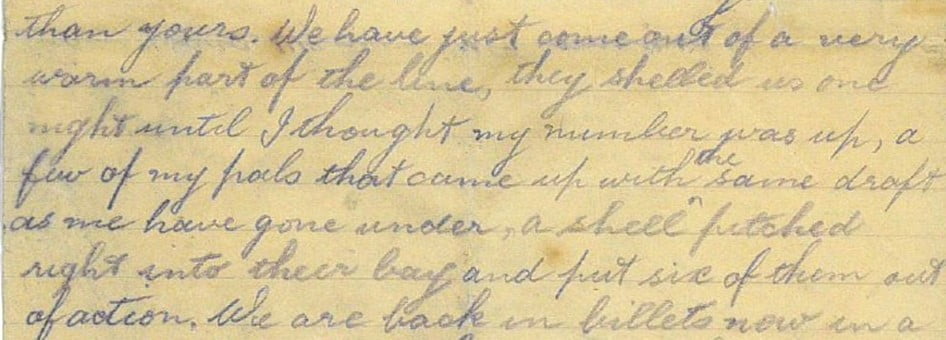 than yours. We have just come out of a very
warm part of the line, they shelled us one
night until I thought my number was up, a
few of my pals that came up with the same draft
as me have gone under, a shell pitched
right into their bay and put six of them out
of action. We are back in billets now in a